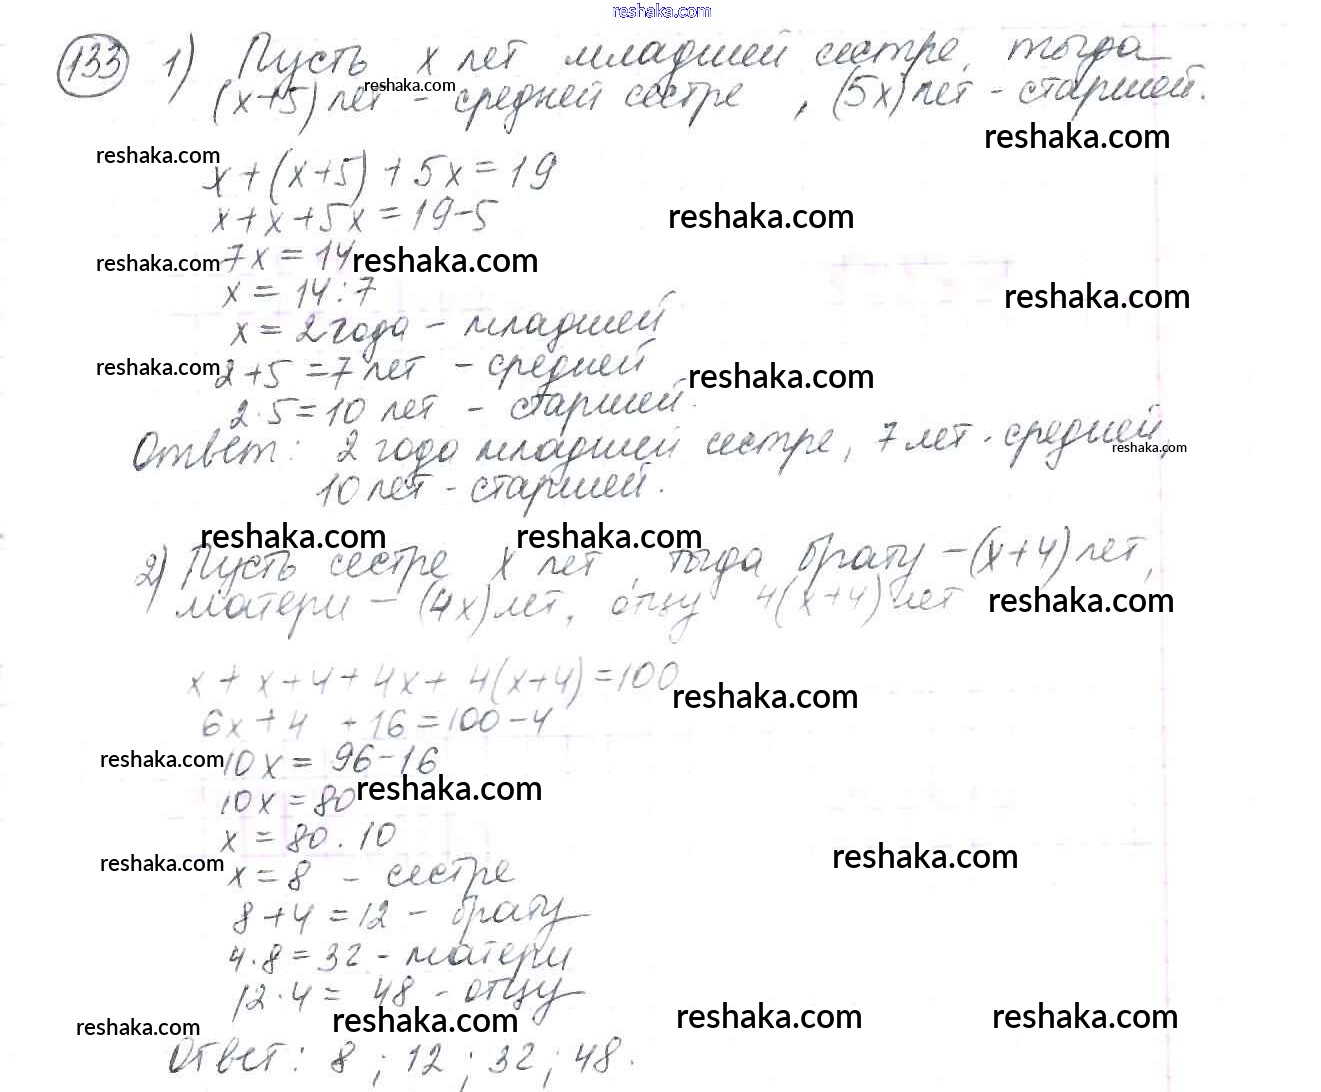 reshaka.com
133 1) Пусть x лет младшей сестре, тогда
reshaka.com
(x+5) лет - средней сестре, (5x) лет - старшей.
reshaka.com
reshaka.com
x+(x+5)+5x=19
x+x+5x=19-5
reshaka.com
7x=14
reshaka.com
reshaka.com
x=14:7
reshaka.com
x=2 года - младшей
reshaka.com
2+5=7 лет - средней
reshaka.com
2·5=10 лет - старшей.
Ответ: 2 года младшей сестре, 7 лет - средней,
reshaka.com
10 лет - старшей.
reshaka.com reshaka.com
2) Пусть сестре x лет, тогда брату - (x+4) лет,
матери - (4x) лет, отцу 4(x+4) лет
reshaka.com
x+x+4+4x+4(x+4)=100
reshaka.com
6x+4 +16=100-4
reshaka.com
10x=96-16
10x=80
reshaka.com
x=80.10
reshaka.com
reshaka.com
x=8 - сестре
8+4=12 - брату
4·8=32 - матери
12·4=48 - отцу
reshaka.com reshaka.com reshaka.com reshaka.com
Ответ: 8; 12; 32; 48.